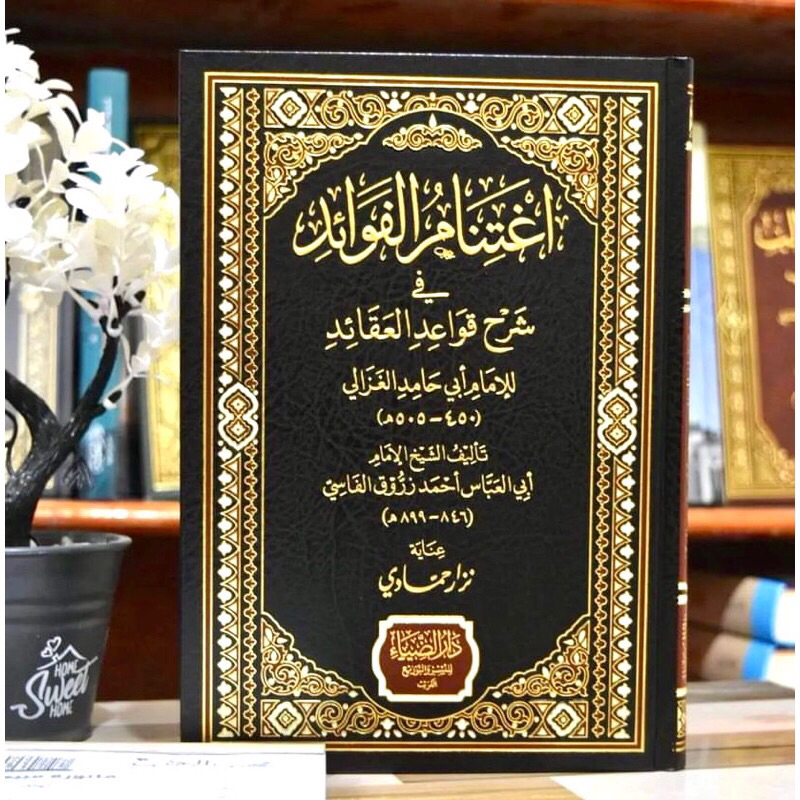 اغْتِنَامُ الفَوَائِدِ
في
شَرْح قَوَاعِدِ العَقَائِدِ
للإمَامِ أبي حَامِد الغَزَالي
(٤٥٠-٥٠٥هـ)
تَأليفُ الشَّيْخ الإمَامِ
أبي العَبَّاس أحْمَد زرُّوق الفَاسِيّ
(٨٤٦-٨٩٩هـ)
عِنَايَة
نزار حمّادي
دَارُ الضِّيَاء
للنشر والتوزيع
الكويت
HOME
Sweet
HOME